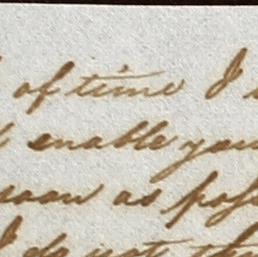 of time I
enable you
soon as poss
I do not